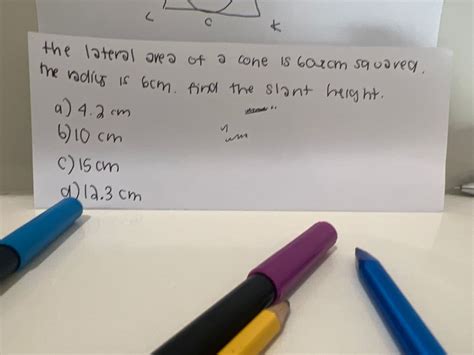 L C K
the lateral area of a cone is 60πcm squared.
the radius is 6cm. find the slant height.
a) 4.2 cm
b) 10 cm
c) 15 cm
d) 12.3 cm